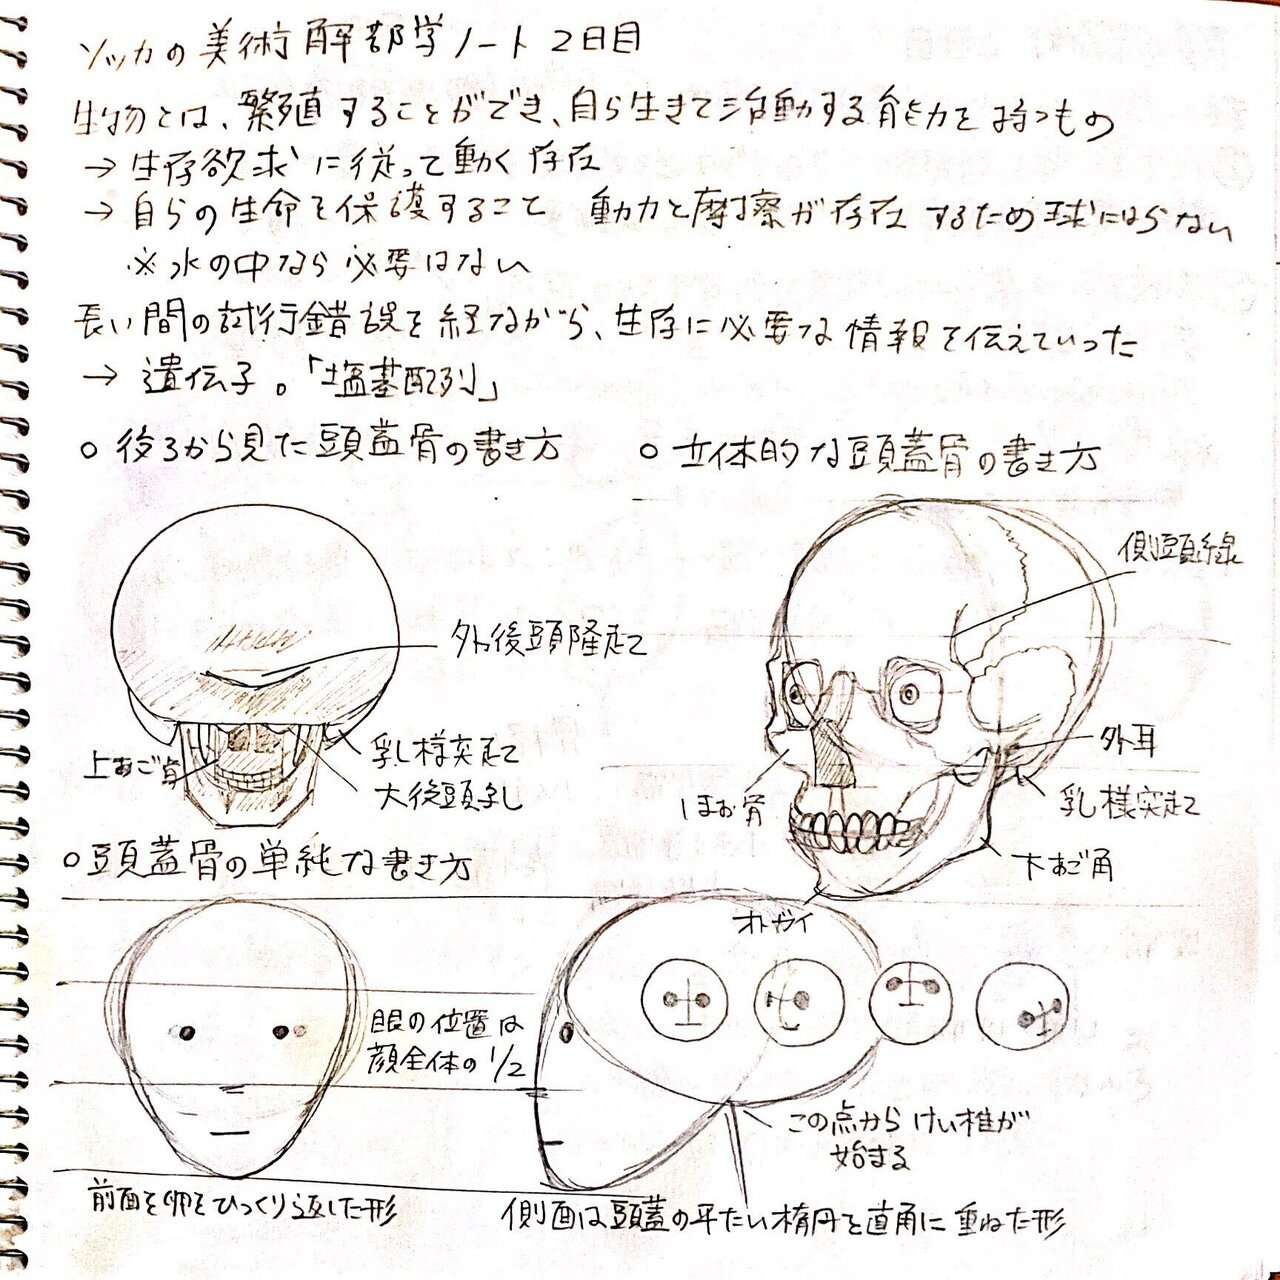 ソッカの美術解部学ノート2日目
生物とは、繁殖することができ、自ら生きて活動する能力を持つもの
→ 生存欲求に従って動く存在
→ 自らの生命を保護すること 動力と摩擦が存在するため球にはらない
※水の中なら必要はない
長い間の試行錯誤を経ながら、生存に必要な情報を伝えていった
→ 遺伝子。「塩基配列」
○ 後ろから見た頭蓋骨の書き方
○ 立体的な頭蓋骨の書き方
側頭線
外後頭隆起
上あご骨
乳様突起
大後頭孔
外耳
ほお骨
乳様突起
下あご角
オトガイ
○頭蓋骨の単純な書き方
眼の位置は
顔全体の1/2
この点からけい椎が
始まる
前面を卵をひっくり返した形
側面は頭蓋の平たい楕円を直角に重ねた形